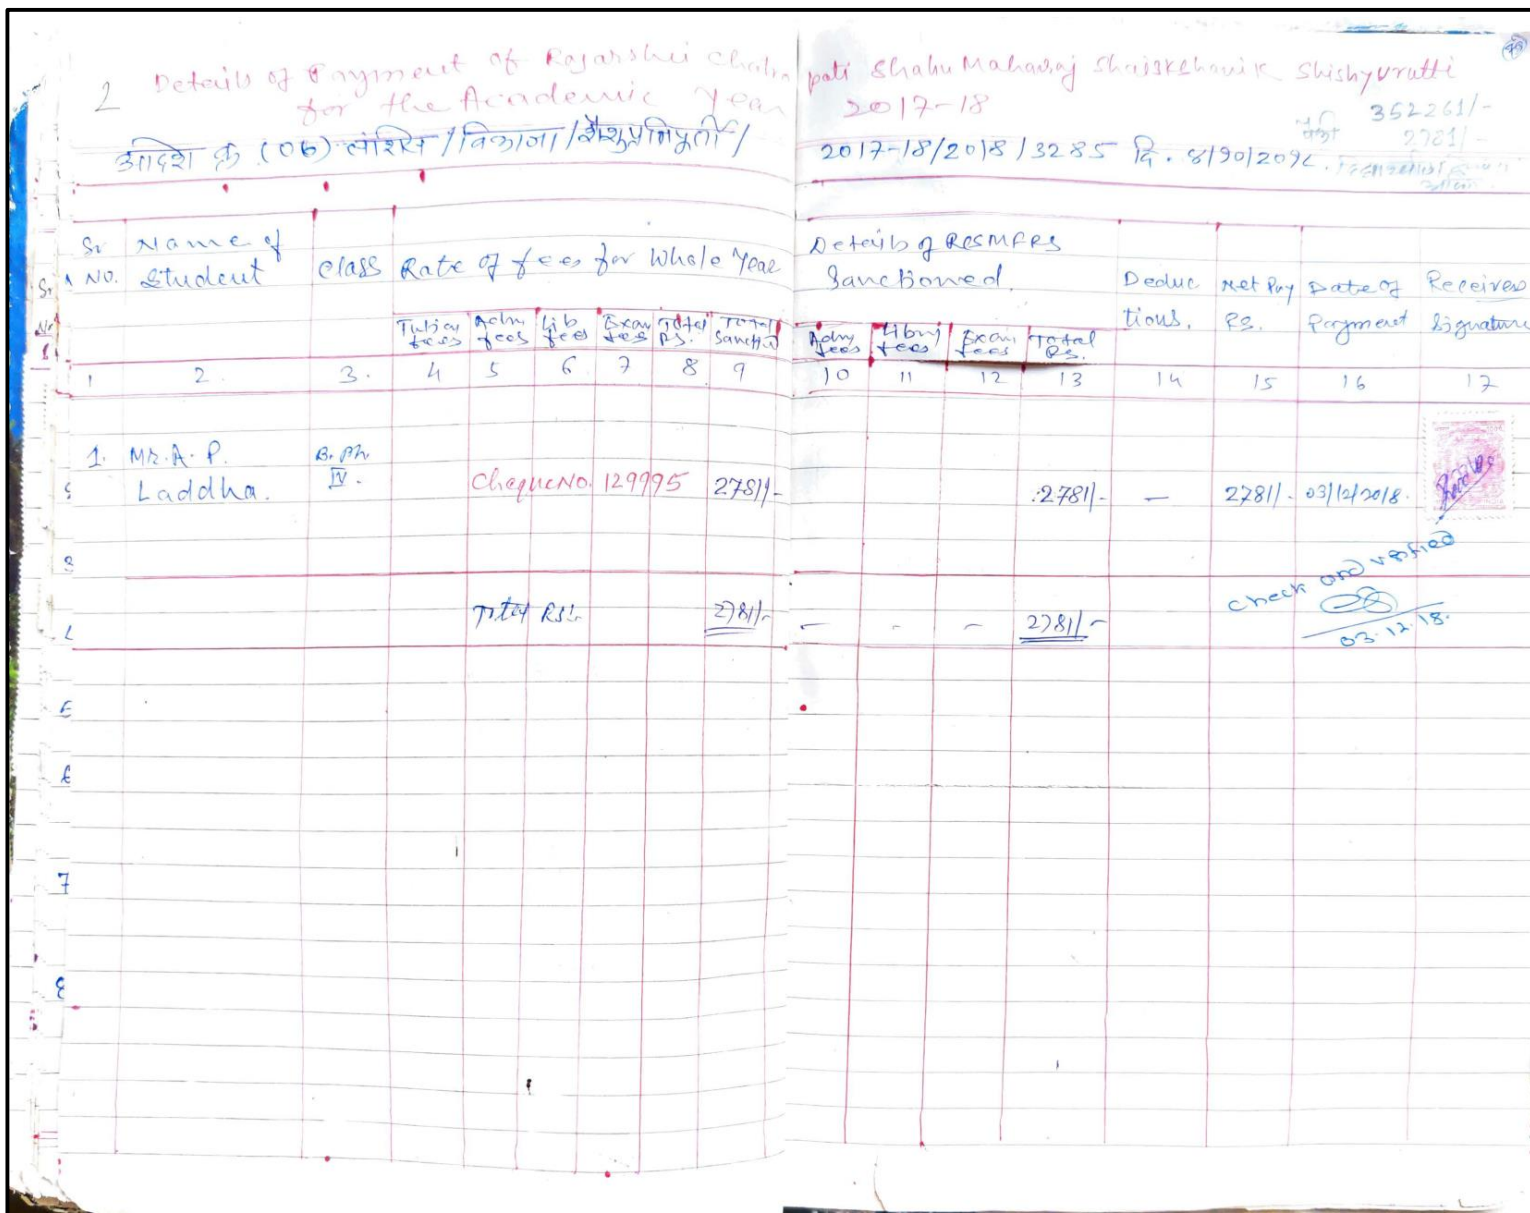 2 Details of Payment of Rajarshi Chatrapati Shahu Maharaj Shaikshanik Shishyvrutti
for the Academic Year 2017-18
352261/-
2781/-
आदेश क्र (06) संशिसं/विकाजा/शैशुप्रतिपूर्ती/ 2017-18/2018/3285 दि. ४/१०/२०१८.
Sr NO. Name of Student Class Rate of fees for Whole Year Details of RCSMFRS Sanctioned. Deductions. Net Pay RS. Date of Payment Receivers Signature
Tution fees Adm fees Lib fees Exam fees Total RS. Total Sanctid Adm fees Library fees Exam fees Total RS.
1 2. 3. 4 5 6 7 8 9 10 11 12 13 14 15 16 17
1. Mr. A. P. B. Ph
Laddha. IV. Cheque No. 129995 2781/- 2781/- — 2781/- 03/12/2018.
check and verified
Total RS:- 2781/- — - — 2781/-
03.12.18.
7